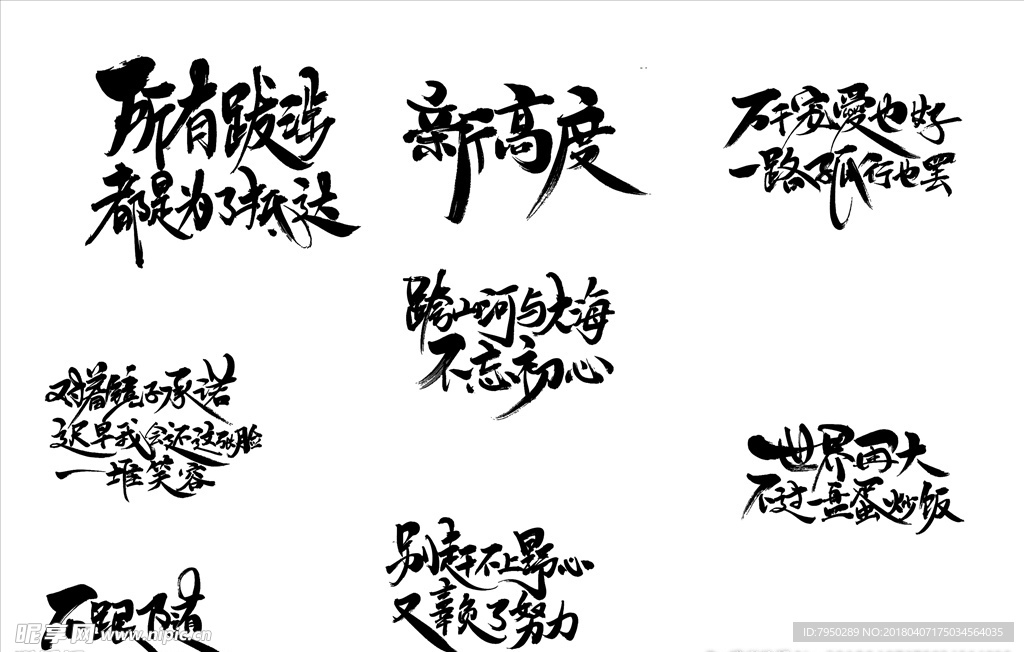 所有跋涉
都是为了抵达
新高度
万千宠爱也好
一路孤行也罢
跨山河与大海
不忘初心
对着镜子承诺
迟早我会还这张脸
一堆笑容
世界再大
不过一盘蛋炒饭
别赶不上野心
又辜负了努力
不跟随
昵享网 www.nipic.cn
ID:7950289 NO:20180407175034564035